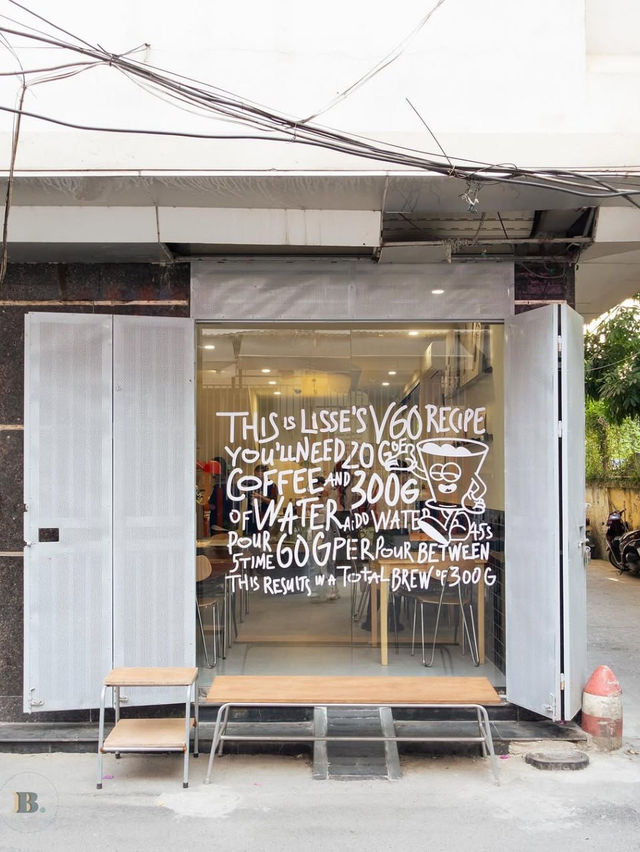 THIS IS LISSE'S V60 RECIPE
YOU'LL NEED 20G OF
COFFEE AND 300G
OF WATER ADD WATER
POUR 45S
5TIME 60G PER POUR BETWEEN
THIS RESULTS IN A TOTAL BREW OF 300G
B.